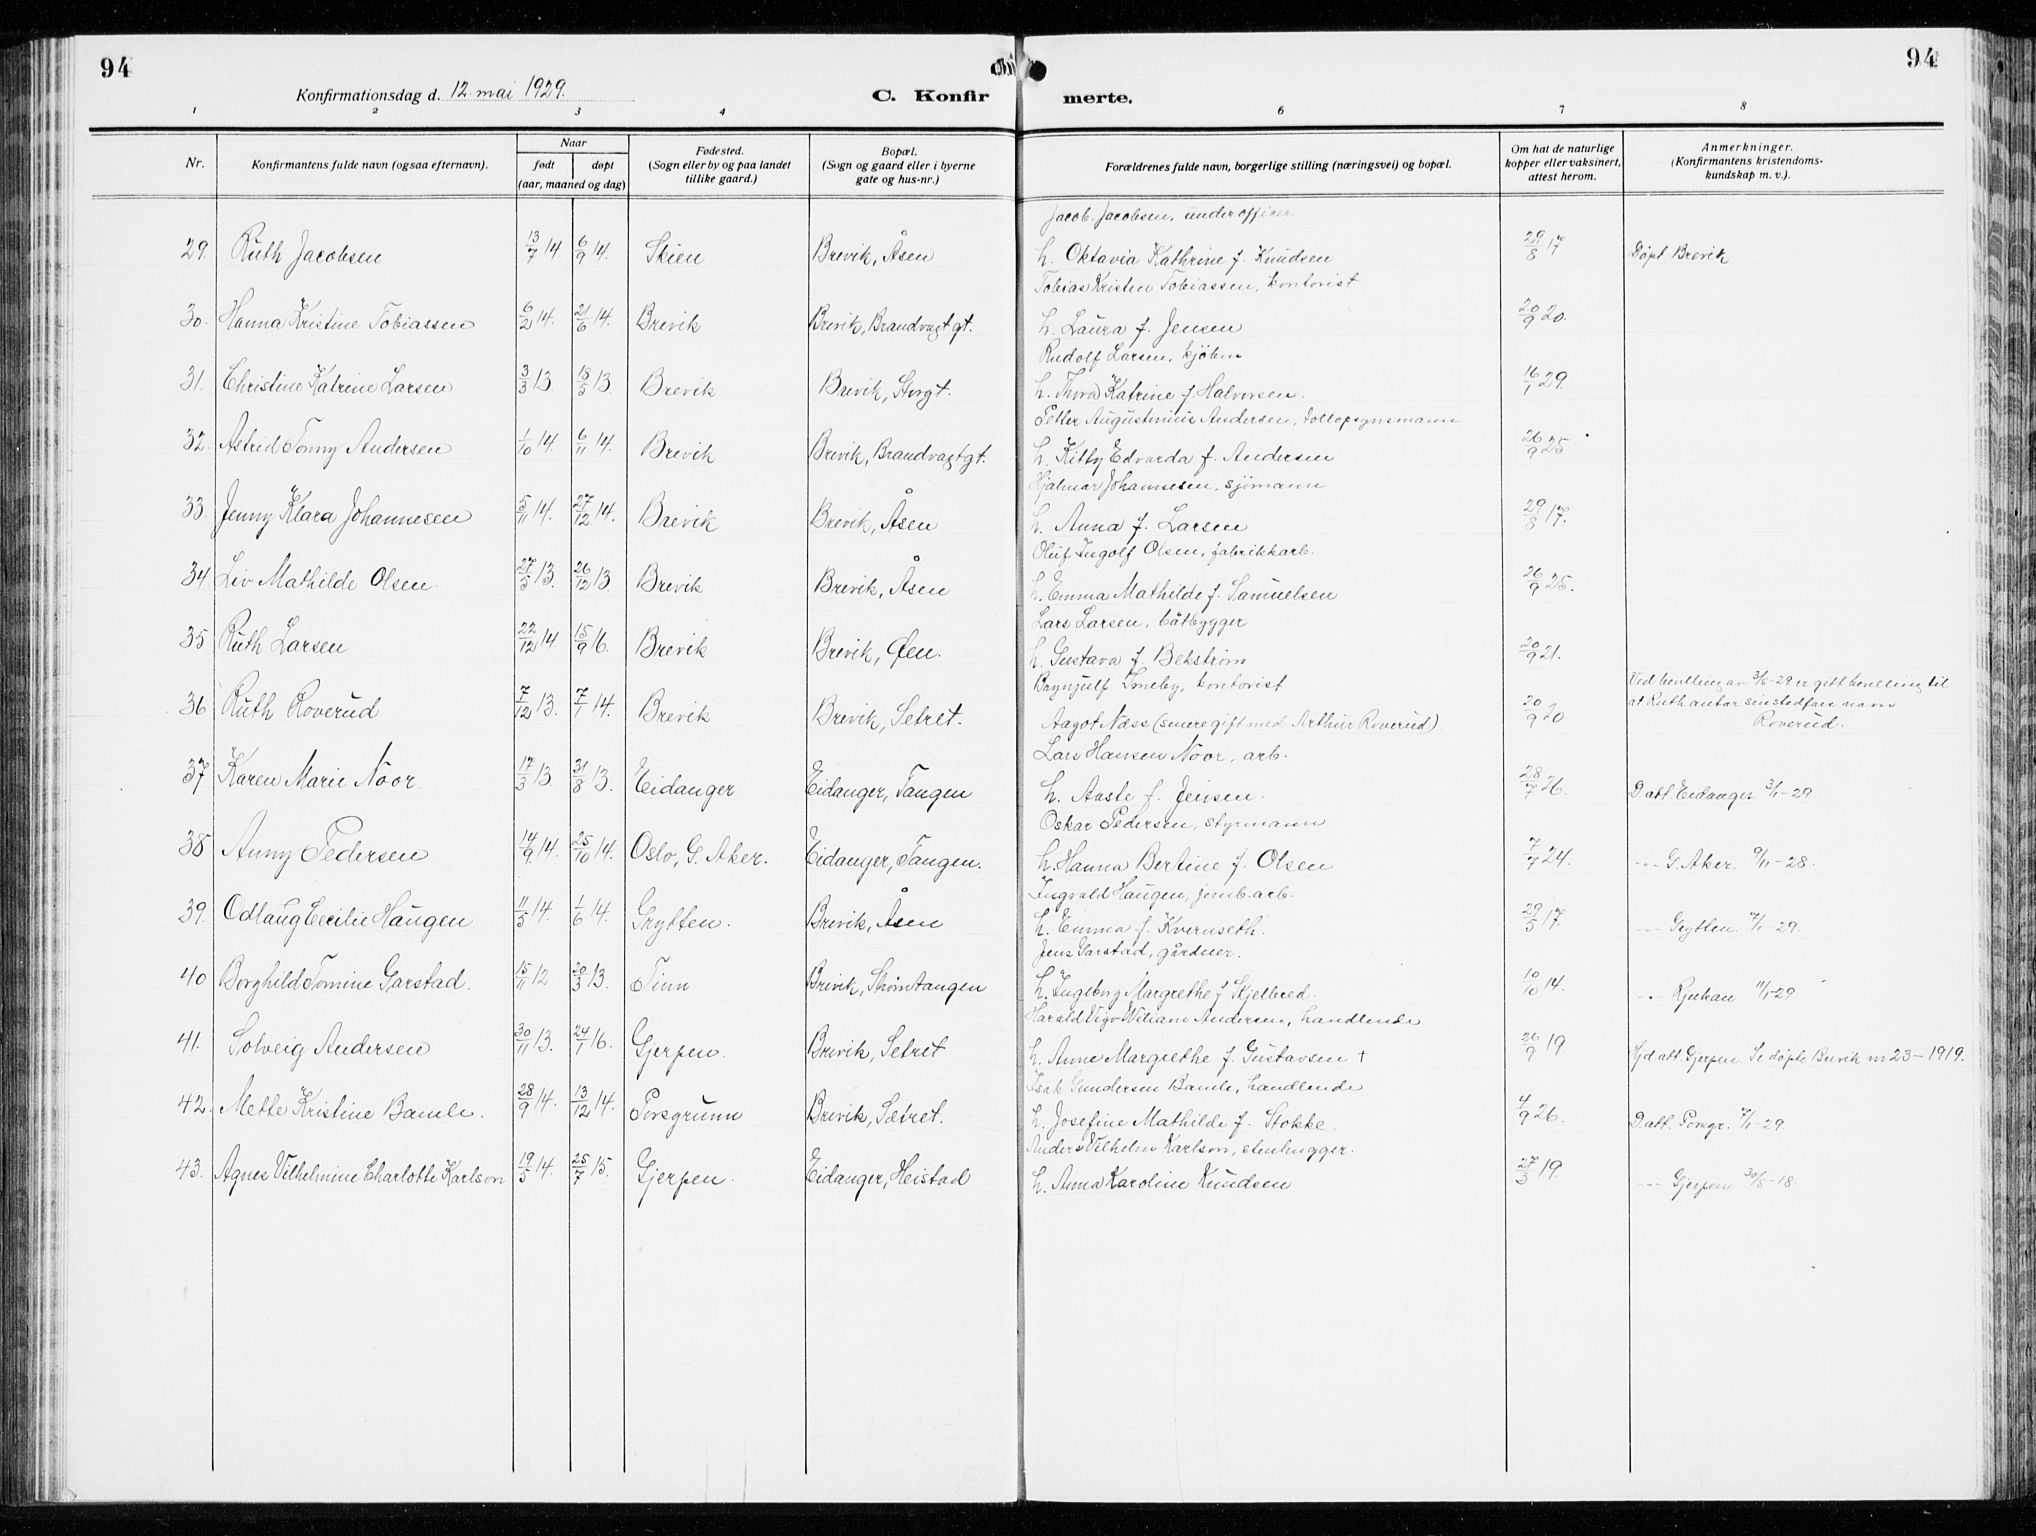 94
94
Konfirmationsdag d. 12. mai 1929.
C. Konfirmerte.
1 2 3 4 5 6 7 8
Nr.
Konfirmantens fulde navn (ogsaa efternavn).
Naar
født
døpt
(aar, maaned og dag)
Fødested.
(Sogn eller by og paa landet
tillike gaard.)
Bopæl.
(Sogn og gaard eller i byerne
gate og hus-nr.)
Forældrenes fulde navn, borgerlige stilling (næringsvei) og bopæl.
Om hat de naturlige
kopper eller vaksinert,
attest herom.
Anmerkninger.
(Konfirmantens kristendoms-
kundskap m. v.).
Jacob Jacobsen, underofficer
29. Ruth Jacobsen 13/7 14. 6/9 14. Skien Brevik, Åsen h. Oktavia Kathrine f. Knudsen 29/8 17 Døpt Brevik
Tobias Kristen Tobiassen, kontorist
30. Hanna Kristine Tobiassen 6/2 14. 21/6 14. Brevik Brevik, Brandvagtgt. h. Laura f. Jensen 20/9 20.
Rudolf Larsen, kjøbm
31. Christine Katrine Larsen 3/3 13 18/5 13 Brevik Brevik, Storgt. h. Thora Katrine f. Halvorsen. 16/1 29.
Petter Augustinius Andersen, tollopsynsmann
32. Astrid Tonny Andersen 1/10 14. 6/11 14. Brevik Brevik, Brandvagtgt. h. Kitty Edvarda f. Andersen 26/9 25
Hjalmar Johannesen, sjømann
33. Jenny Klara Johannesen 5/11 14. 27/12 14. Brevik Brevik, Åsen h. Anna f. Larsen 29/8 17.
Oluf Ingolf Olsen, fabrikkarb.
34. Liv Mathilde Olsen. 27/5 13. 26/12 13 Brevik Brevik, Åsen h. Emma Mathilde f. Samuelsen 26/9 25.
Lars Larsen, båtbygger
35 Ruth Larsen 22/12 14. 15/9 16. Brevik Brevik, Øen. h. Gustava f. Bekstrøm 20/9 21.
Raynjulf Smeby, kontorist Ved bevilling av 3/5-29 er gitt bevilling til
36 Ruth Roverud 7/12 13. 7/1 14. Brevik Brevik, Setret. Aagot Næss (senere gift med Arthur Roverud) 20/9 20 at Ruth antar sin stedfars navn
Roverud.
Lars Hansen Noor, arb.
37 Karen Marie Noor. 17/3 13 31/8 13. Eidanger Eidanger, Tangen h. Aaste f. Jensen. 28/7 26. D.att. Eidanger 3/1-29
Oskar Pedersen, styrmann
38 Anny Pedersen 14/9 14. 25/10 14. Oslo, G. Aker. Eidanger, Tangen. h. Hanna Bertine f. Olsen 7/7 24. -"- G. Aker. 9/11-28.
Ingvald Haugen, jernb.arb.
39. Odlaug Cecilie Haugen 11/5 14. 1/6 14. Grytten. Brevik, Åsen h. Emma f. Kvernseth. 29/5 17. -"- Grytten 7/1-29.
Jens Garstad, gårdeier.
40 Borghild Tomine Garstad. 15/11 12 20/3 13. Tinn Brevik, Strømtangen h. Ingeborg Margrethe f. Skjelbred. 10/10 14. -"- Rjukan 11/1-29
Harald Vigo Wiliam Andersen, handlende
41. Solveig Andersen 30/11 13. 24/1 16. Gjerpen. Brevik, Setret h. Anne Margrethe f. Gustavsen + 26/9 19. Hjd att. Gjerpen. Se døpte Brevik nr 23-1919.
Isak Gundersen Bamle, handlende
42. Mette Kristine Bamle. 28/9 14. 13/12 14. Porsgrunn Brevik, Sætret. h. Josefine Mathilde f. Stokke. 4/9 26. D.att. Porsgr. 7/1-29.
Anders Vilhelm Karlson, stenhugger.
43. Agnes Vilhelmine Charlotte Karlson 19/5 14. 25/7 15. Gjerpen. Eidanger, Heistad h. Anna Karoline Knudsen 27/3 19. -"- Gjerpen 30/8-18.